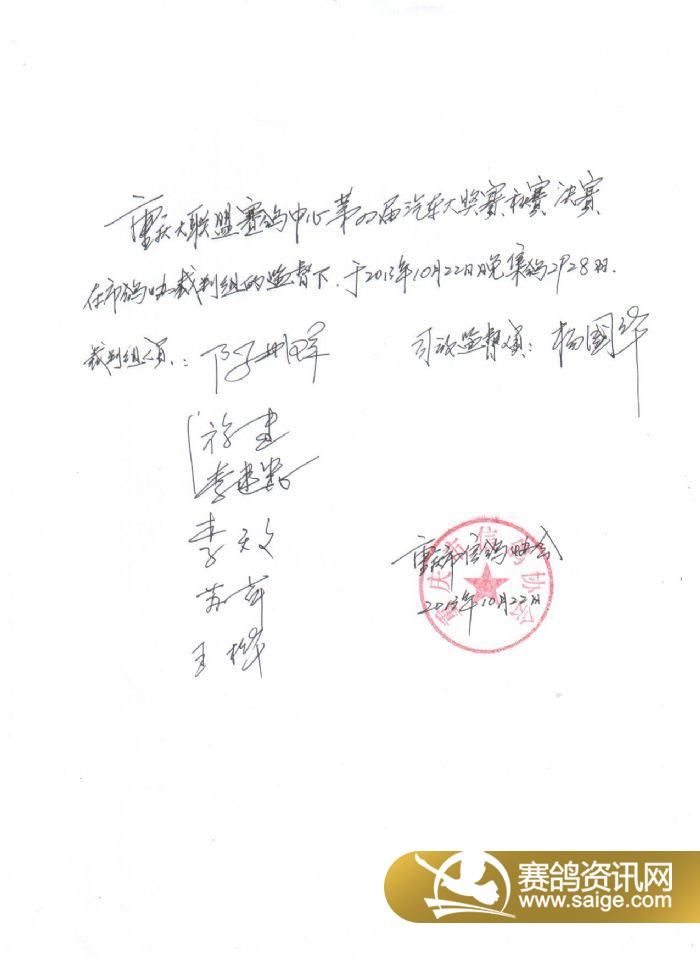 重庆大联盟赛鸽中心第四届汽车大奖赛秋赛决赛
在市鸽协裁判组的监督下.于2013年10月22日晚集鸽2728羽.
裁判组人员: 司放监督员: 杨国华
徐建
李建
李文
苏军
王桦
重庆市信鸽协会
2013年10月22日
重庆市信鸽协会
赛鸽资讯网
www.saige.com